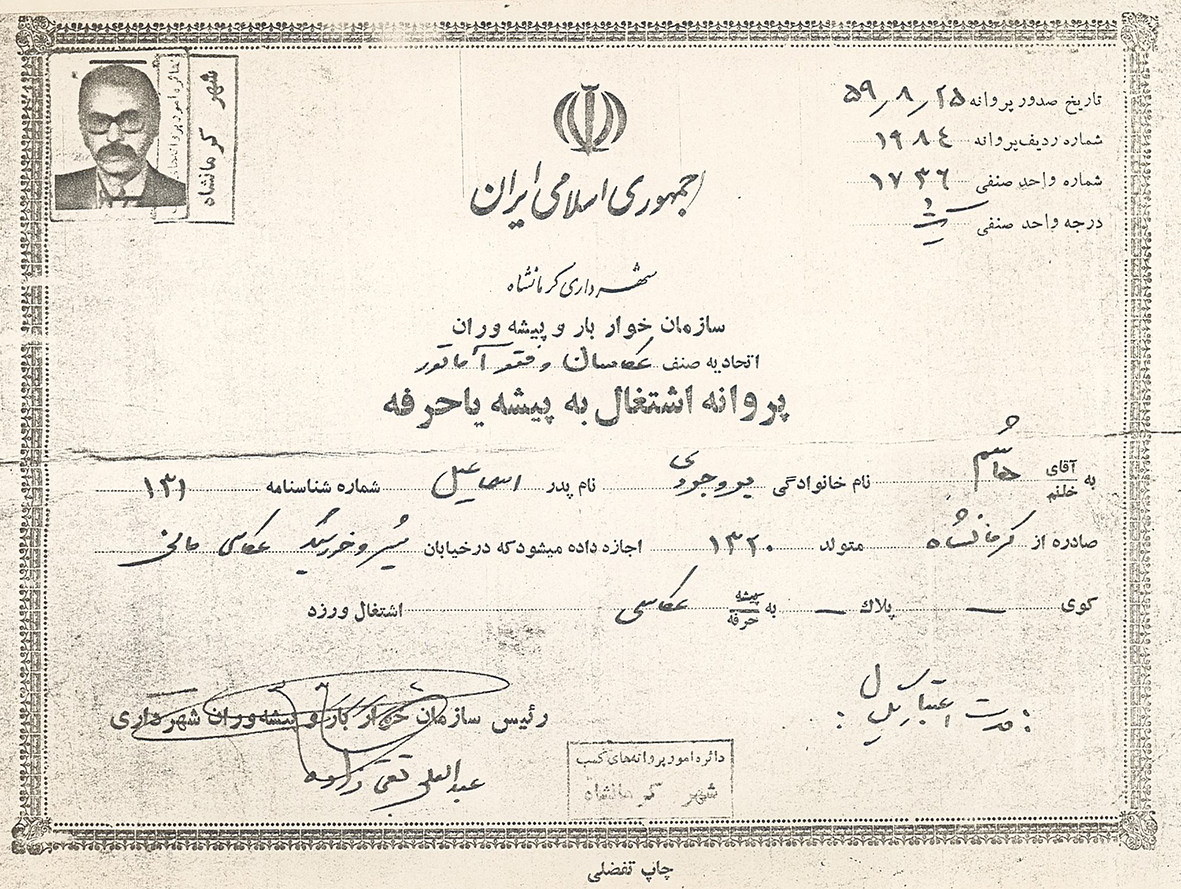 تاریخ صدور پروانه ۵۹/۸/۲۵
شماره ردیف پروانه ۱۹۸٤
شماره واحد صنفی ۱۷۳۶
درجه واحد صنفی
شهر کرمانشاه
جمهوری اسلامی ایران
شهرداری کرمانشاه
سازمان خوار بار و پیشه وران
اتحادیه صنف عکاسان و آماتور
پروانه اشتغال به پیشه یا حرفه
به آقای خانم هاشم نام خانوادگی بروجردی نام پدر اسماعیل شماره شناسنامه ۱۳۱
صادره از کرمانشاه متولد ۱۳۲۰ اجازه داده میشود که در خیابان شیر و خورشید عکاسی مانی
کوی — پلاک — به پیشه حرفه عکاسی اشتغال ورزد
مدت اعتبار یکسال
رئیس سازمان خوار بار و پیشه وران شهرداری
عبدالعلی تقی زاده
دائره امور پروانه‌های کسب
شهر کرمانشاه
چاپ تفضلی